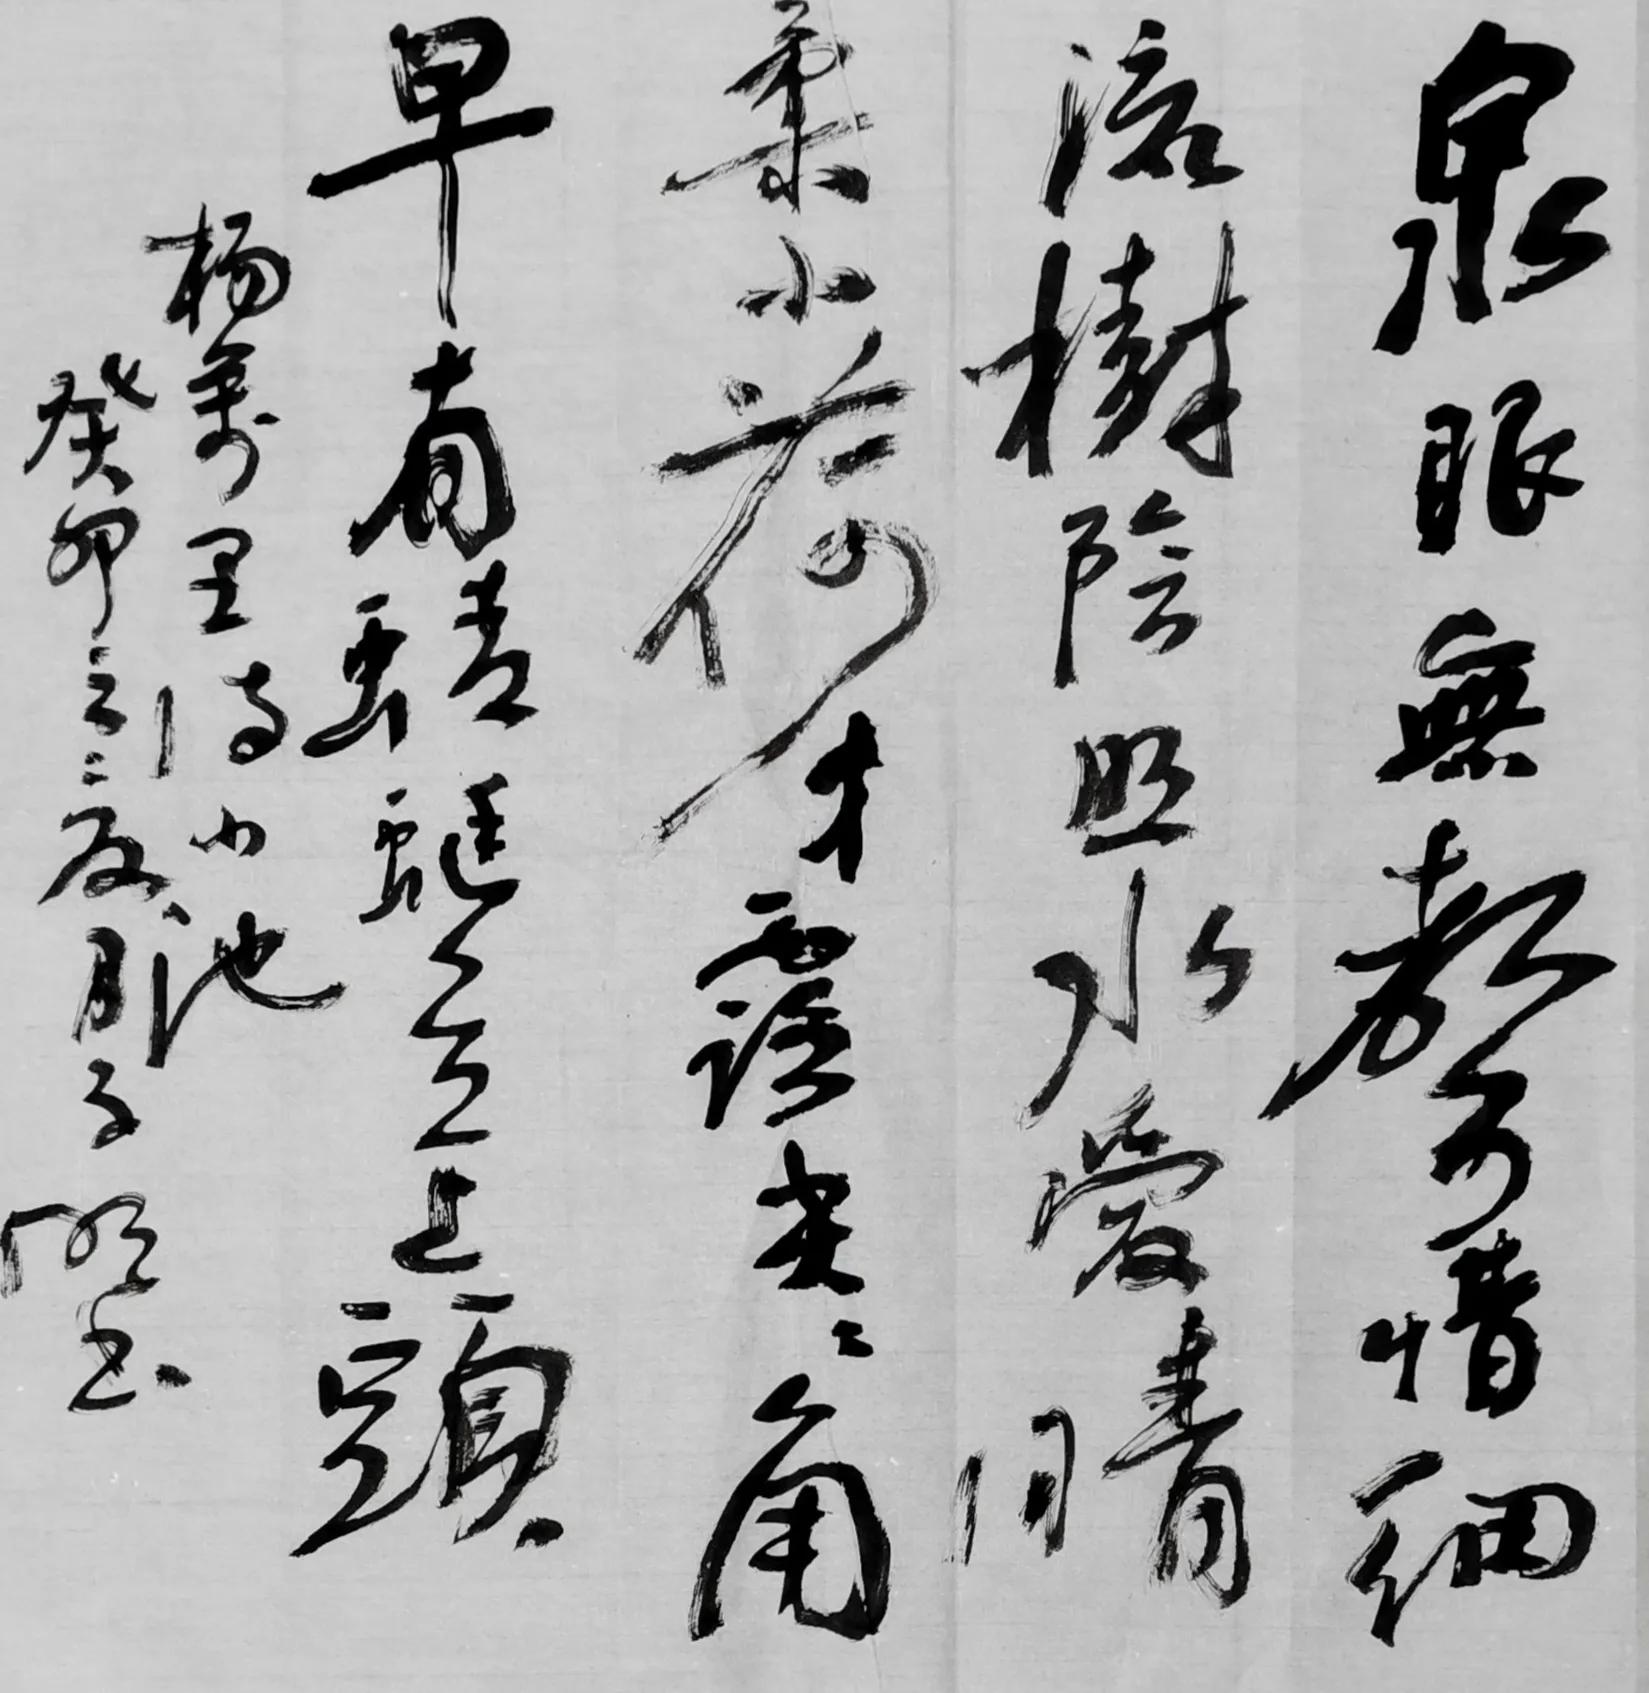 泉眼無聲惜細
流樹陰照水愛晴
柔小荷才露尖々角
早有蜻蜓立上頭
楊萬里詩小池
癸卯夏月子明书